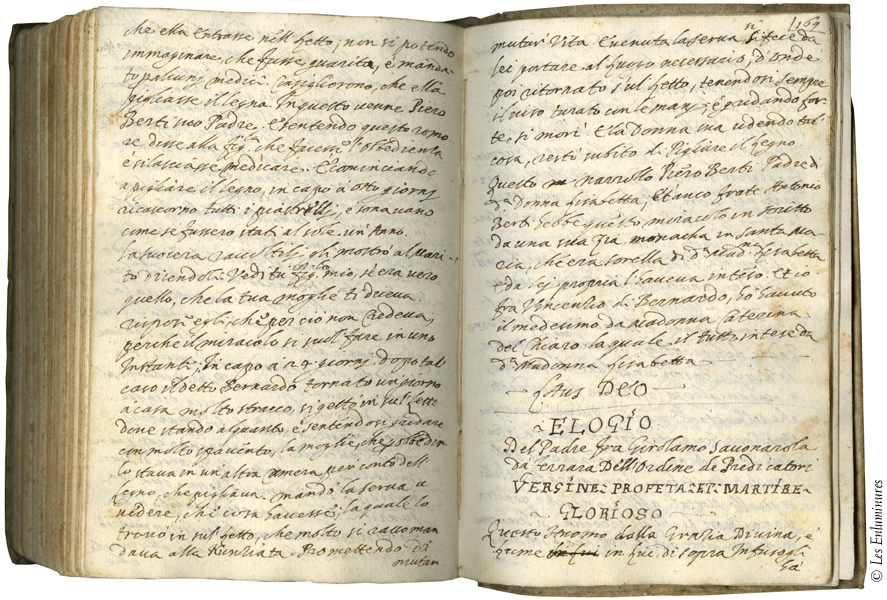 che ella entrasse nell letto; non si potendo
immaginare, che fusse guarita, e manda-
to p alcuni medici consigliorono, che ella
pigliasse il legno. In questo venne Piero
Berti suo Padre, e sentendo questo romo-
re disse alla figla che facessi l'obbedienza
e si lasciasse medicare. E cominciando
a pigliare il legno, in capo a otto giorni
ricascorno tutti i piastrelli, e sonavano
come se fussero stati al sole un'Anno.
La suocera raccoltili gli mostrò al Mari-
to dicendoli: Vedi tu figlo mio, s'era vero
quello, che la tua moglie ti diceva.
rispose egli, che per ciò non credeva,
perche il miracolo si suol fare in uno
Instanti, In capo a 24 giorni dopo tal
caso il detto Bernardo tornato un giorno
a casa molto stracco, si gettò in sul letto
dove stando alquanto, e sentendosi gridare
con molto spavento, la moglie, che
lo stava in un'altra camera, per conto dell
legno, che pigliava. mandò la serva a
vedere, che cosa havesse, la quale lo
trovò in sul letto, che molto si raccoman
dava alla Nunziata. Promettendo di
mutar
1169
mutar Vita. E venuta la serva si fece da
lei portare al luogo necessario, d'onde
poi ritornato sul letto, tenendosi sempre
il viso turato con le mani, e gridando for-
te, si morì. E la Donna sua udendo tal
cosa, restò subito di Pigliare il legno
Questo narrollo Piero Berti Padre di
da Donna Lisabetta, Et anco frate Antonio
Berti hebbe questo miracolo in scritto
da una sua zia monacha in Santa Ma
ria, che era sorella di da Madna Lisabetta
e da lei propria l'haveva inteso. Et io
fra Vincenzio di Bernardo, ho havuto
il medesimo da Madonna Caterina
del Chiaro la quale il tutto intese da
da Madonna Lisabetta
Laus DEO
ELOGIO
Del Padre fra Girolamo Savonarola
da ferrara Dell'Ordine de Predicatori
VERGINE PROFETA ET MARTIRE
GLORIOSO
Questo Huomo dalla Grazia Divina, e
lume in lui di sopra Infusogli
© Les Enluminures